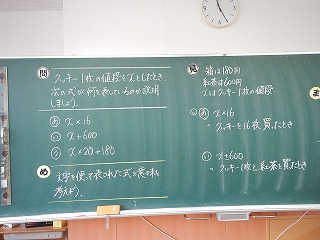 問 クッキー1枚の値段をxとしたとき、
次の式が何を表しているのか説明
しましょう。
あ x×16
い x+600
う x×20+180
め 文字を使って表された式の意味を
考えよう。
見 箱は180円
紅茶は600円
xはクッキー1枚の値段
あ x×16
・クッキーを16枚買ったとき
い x+600
・クッキー1枚と紅茶を買ったとき
ま